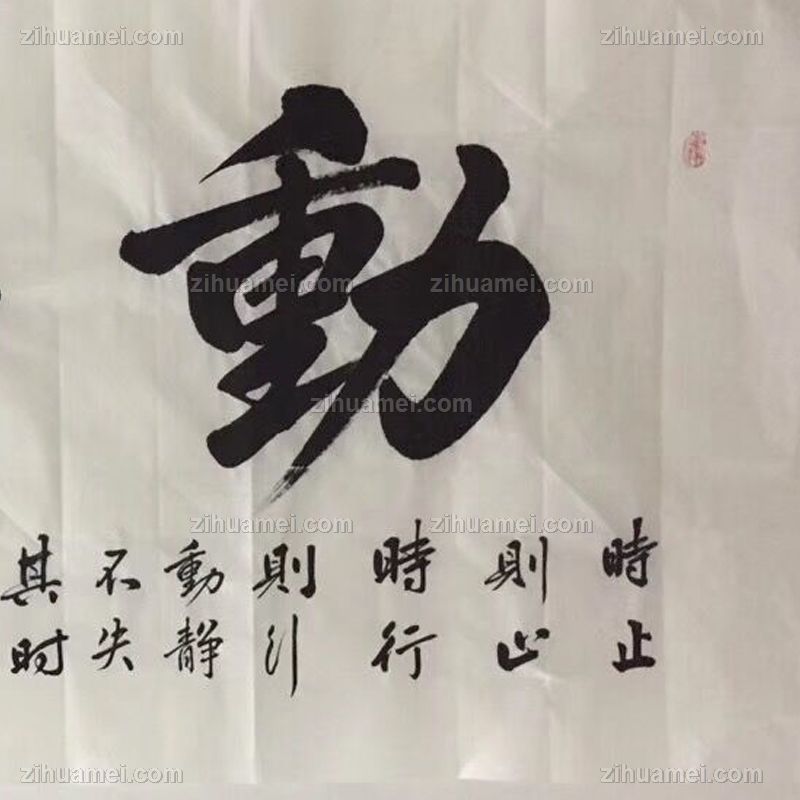 動
時止
則止
時行
則行
動靜
不失
其时
zihuamei.com
zihuamei.com
zihuamei.com
zihuamei.com
zihuamei.com
zihuamei.com
zihuamei.com
zihuamei.com
zihuamei.com